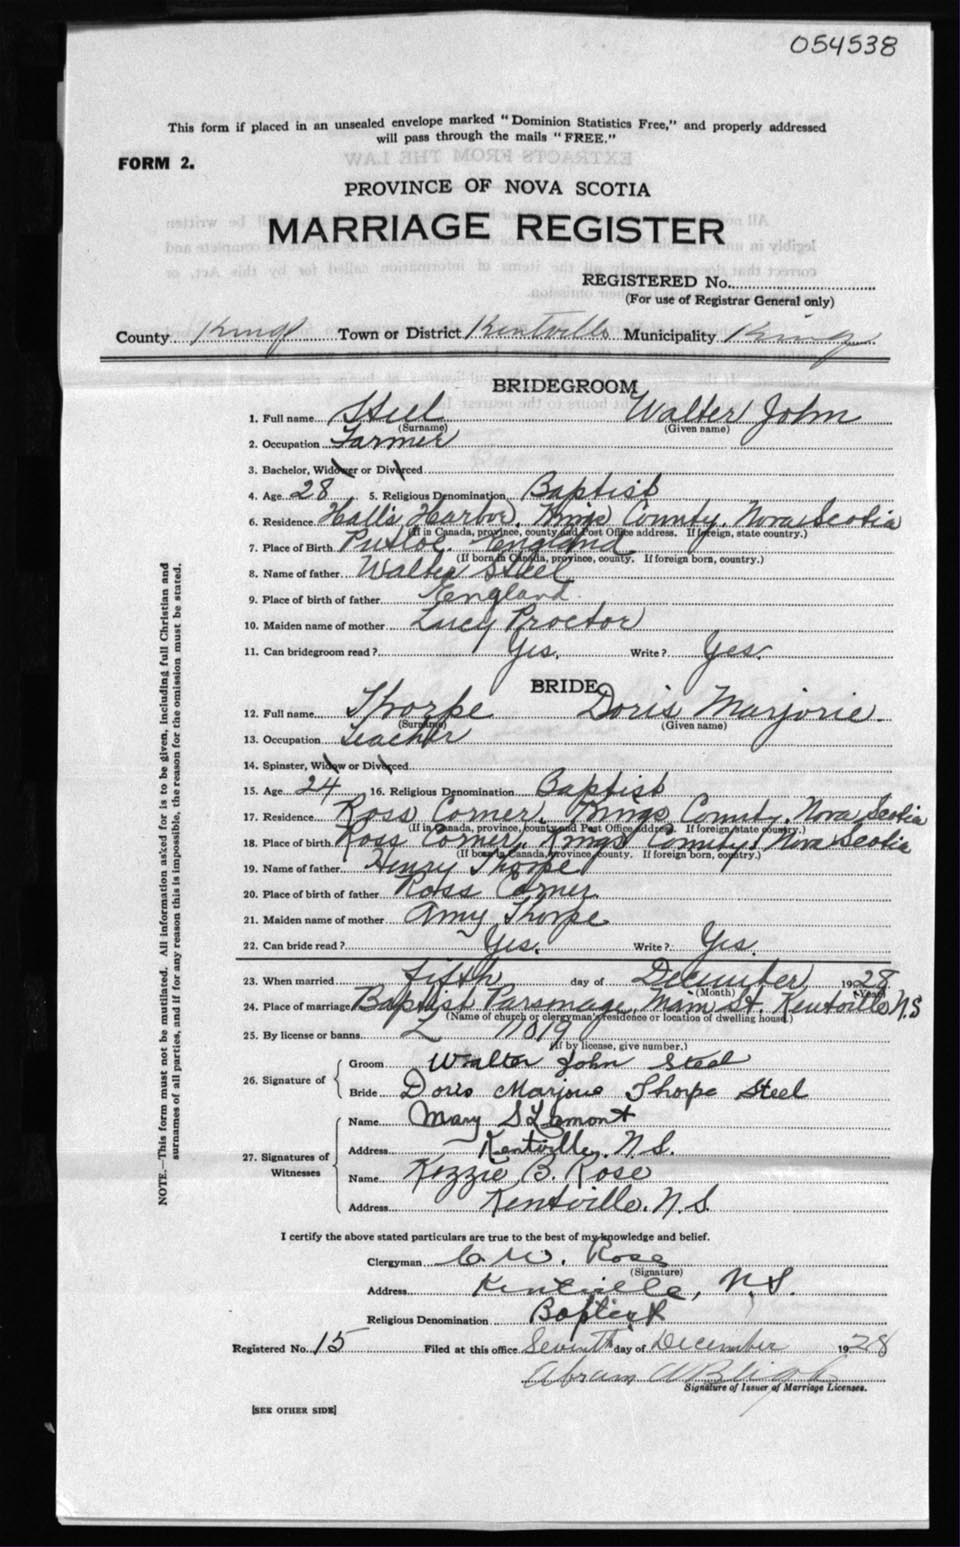 054538
This form if placed in an unsealed envelope marked "Dominion Statistics Free," and properly addressed
will pass through the mails "FREE."
FORM 2.
PROVINCE OF NOVA SCOTIA
MARRIAGE REGISTER
REGISTERED No.
(For use of Registrar General only)
County Kings Town or District Kentville Municipality Kings
BRIDEGROOM
1. Full name Steel Walter John
(Surname) (Given name)
2. Occupation Farmer
3. Bachelor, Widower or Divorced
4. Age 28 5. Religious Denomination Baptist
6. Residence Hall's Harbor, Kings County, Nova Scotia
(If in Canada, province, county and Post Office address. If foreign, state country.)
7. Place of Birth England
(If born in Canada, province, county. If foreign born, country.)
8. Name of father Walter Steel
9. Place of birth of father England
10. Maiden name of mother Lucy Proctor
11. Can bridegroom read? Yes. Write? Yes.
BRIDE
12. Full name Thorpe Doris Marjorie.
(Surname) (Given name)
13. Occupation Teacher
14. Spinster, Widow or Divorced
15. Age 24 16. Religious Denomination Baptist
17. Residence Ross Corner, Kings County, Nova Scotia
(If in Canada, province, county and Post Office address. If foreign state country.)
18. Place of birth Ross Corner, Kings County, Nova Scotia
(If born in Canada, province, county. If foreign born, country.)
19. Name of father Henry Thorpe
20. Place of birth of father Ross Corner
21. Maiden name of mother Amy Thorpe
22. Can bride read? Yes. Write? Yes.
23. When married fifth day of December 1928
(Month) (Year)
24. Place of marriage Baptist Parsonage, Main St. Kentville N.S
(Name of church or clergyman, residence or location of dwelling house.)
25. By license or banns L 1019
(If by license, give number.)
26. Signature of
Groom Walter John Steel
Bride Doris Marjorie Thorpe Steel
27. Signatures of Witnesses
Name Mary S Lamont
Address Kentville, N.S.
Name Kezzie B. Rose
Address Kentville, N.S.
I certify the above stated particulars are true to the best of my knowledge and belief.
Clergyman C. W. Rose
(Signature)
Address Kentville, N.S.
Religious Denomination Baptist
Registered No. 15 Filed at this office Seventh day of December 1928
Abram W Bligh
Signature of Issuer of Marriage Licenses.
[SEE OTHER SIDE]
NOTE.—This form must not be mutilated. All information asked for is to be given, including full Christian and
surnames of all parties, and if for any reason this is impossible, the reason for the omission must be stated.